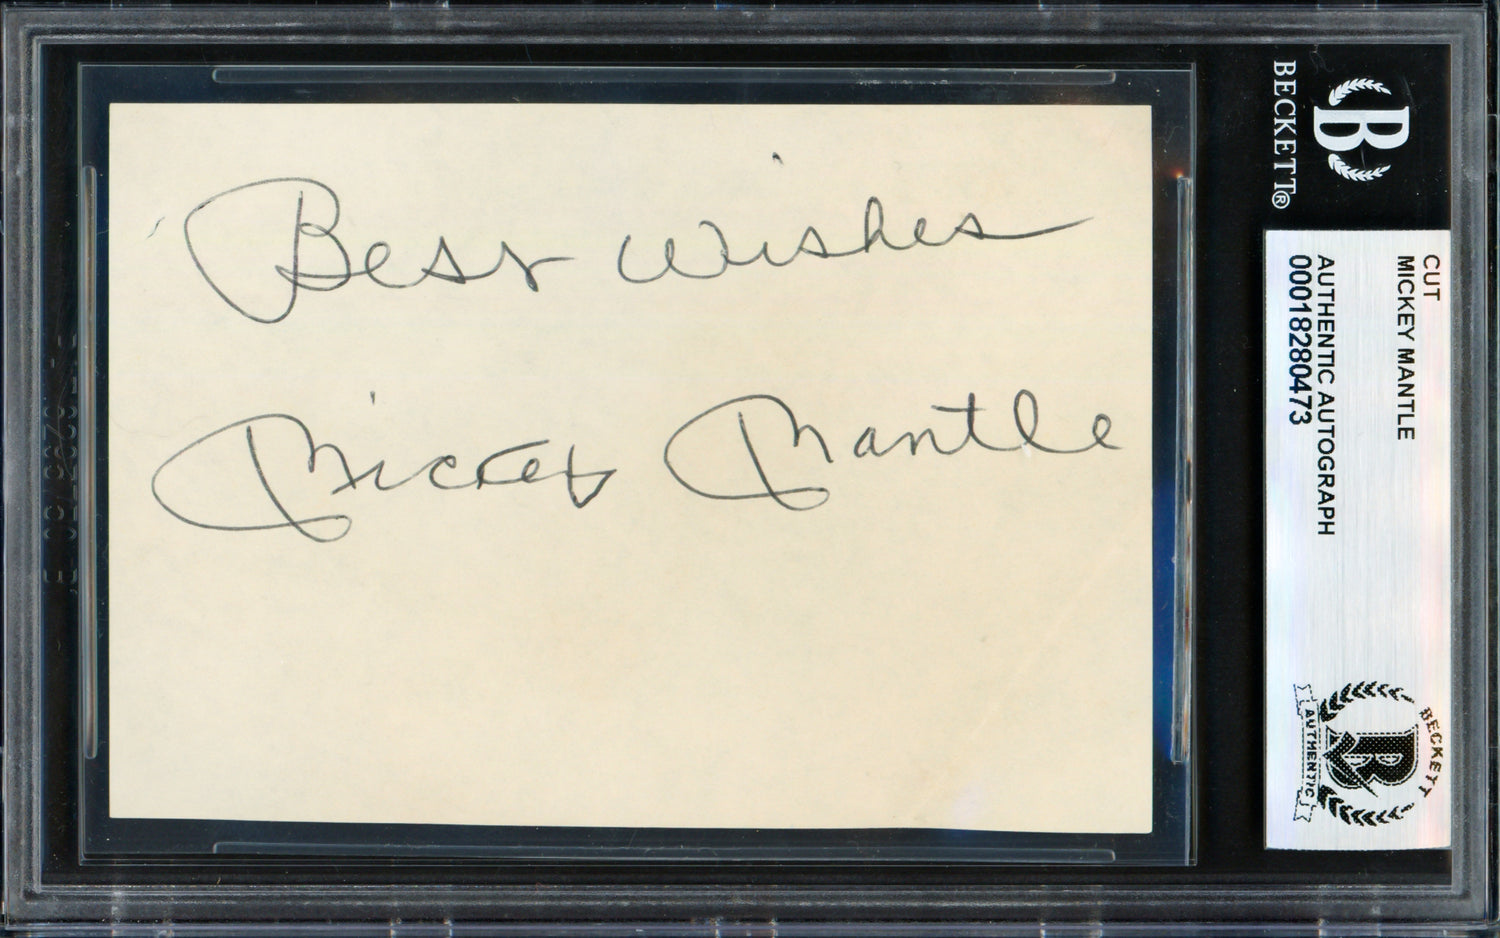 Best Wishes
Mickey Mantle
BECKETT®
B
CUT
MICKEY MANTLE
AUTHENTIC AUTOGRAPH
00018280473
BECKETT
B
AUTHENTIC